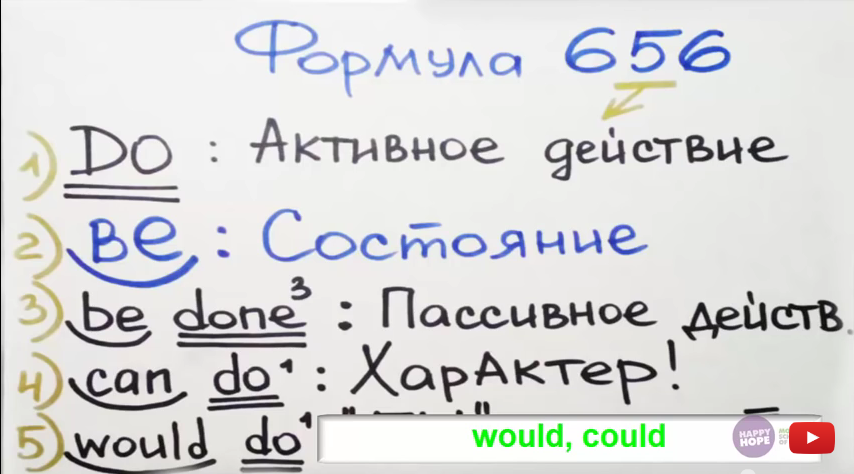 Формула 656
1) DO : Активное действие
2) Be : Состояние
3) be done³ : Пассивное действ.
4) can do¹ : Характер!
5) would do¹
would, could
HAPPY
HOPE